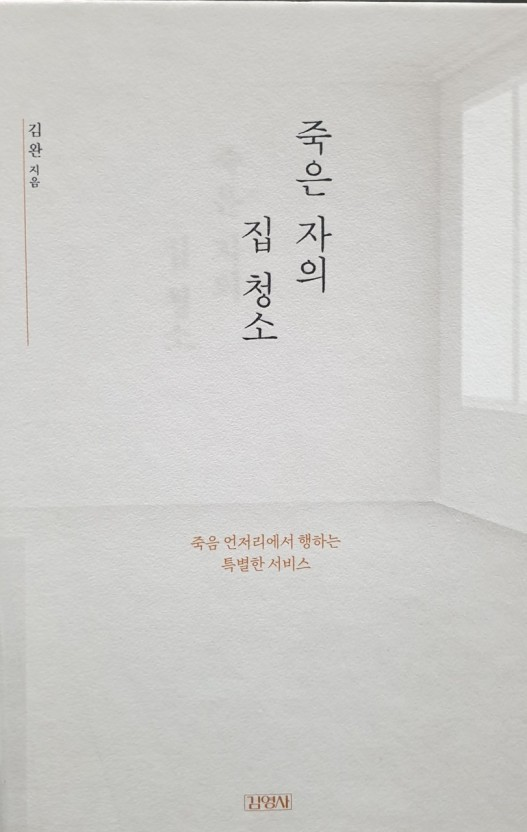 죽은 자의
집 청소
김완 지음
죽음 언저리에서 행하는
특별한 서비스
김영사